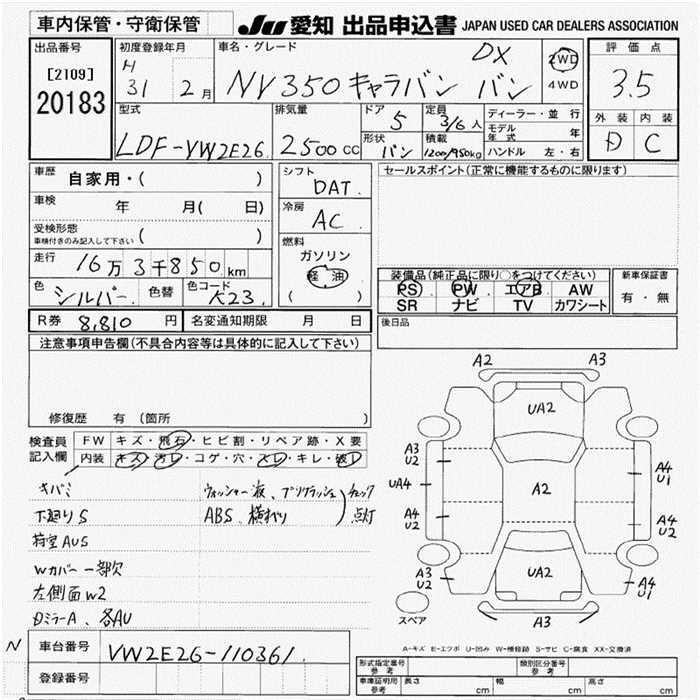 車内保管・守衛保管
JU 愛知 出品申込書 JAPAN USED CAR DEALERS ASSOCIATION
出品番号
[2109]
20183
初度登録年月
H 31 2月
車名・グレード
NV350 キャラバン バン DX
2WD
4WD
評価点
3.5
外装 内装
D C
型式
LDF-VW2E26
排気量
2500cc
ドア 5
定員 3/6人
形状 バン
積載 1200/950kg
ディーラー・並行
モデル年式 年
ハンドル 左・右
車歴 自家用・( )
車検 年 月( 日)
受検形態
車検付きのみ記入して下さい ( )
走行 16万3千850km
色 シルバー 色替 色コード K23
R券 8,810円 名変通知期限 月 日
シフト DAT
冷房 AC
燃料
ガソリン
軽油
( )
セールスポイント(正常に機能するものに限ります)
装備品(純正品に限り○をつけてください)
PS PW エアB AW
SR ナビ TV カワシート
新車保証書
有・無
後日品
注意事項申告欄(不具合内容等は具体的に記入して下さい)
修復歴 有 (箇所 )
検査員記入欄
FW キズ・飛石・ヒビ割・リペア跡・X要
内装 キズ・汚レ・コゲ・穴・スレ・キレ・破レ
キバミ
下廻りS
荷室AUS
Wカバー一部欠
左側面W2
Dミラー A、各AU
ウォッシャー液、プリクラッシュ チェック
ABS、横すべり 点灯
A2 A3
UA2
A3
U2
UA4
A4
U2
A3
U2
A2
A4
U1
A4
U2
UA2
A4
U1
スペア
A3
A-キズ E-エクボ U-凹み W-補修跡 S-サビ C-腐食 XX-交換済
N
車台番号 VW2E26-110361
登録番号
形式指定番号 参考
類別区分番号 参考
車庫証明用 参考 長さ cm 幅 cm 高さ cm